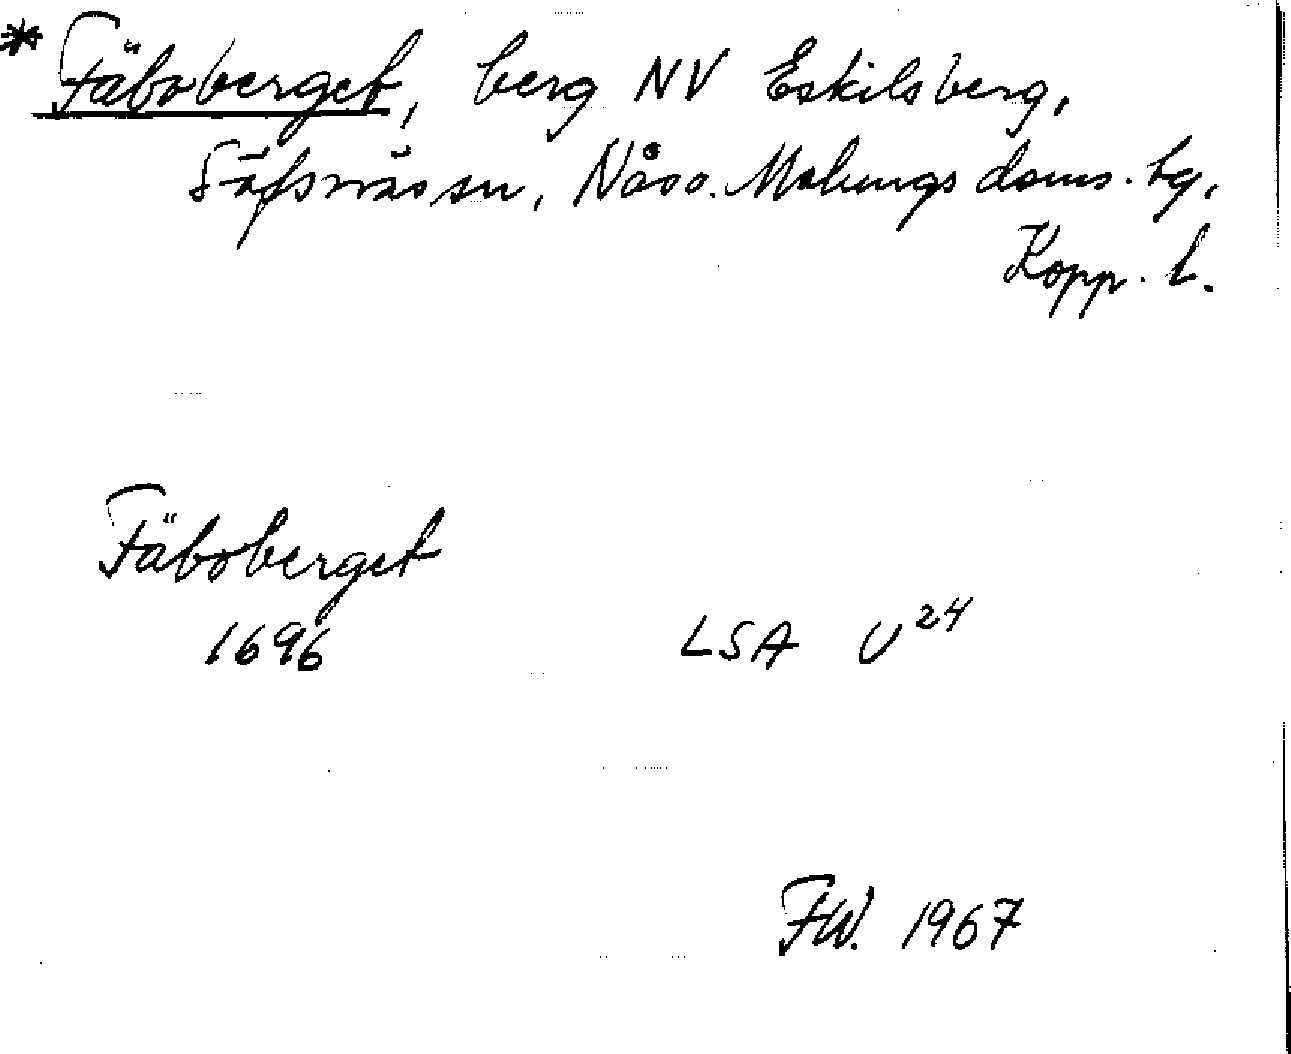 * Fäboberget, berg NV Eskilsberg,
Säfsnäs sn, Nås o. Malungs doms. hg,
Kopp. l.
Fäboberget
1696 LSA U²⁴
FW. 1967